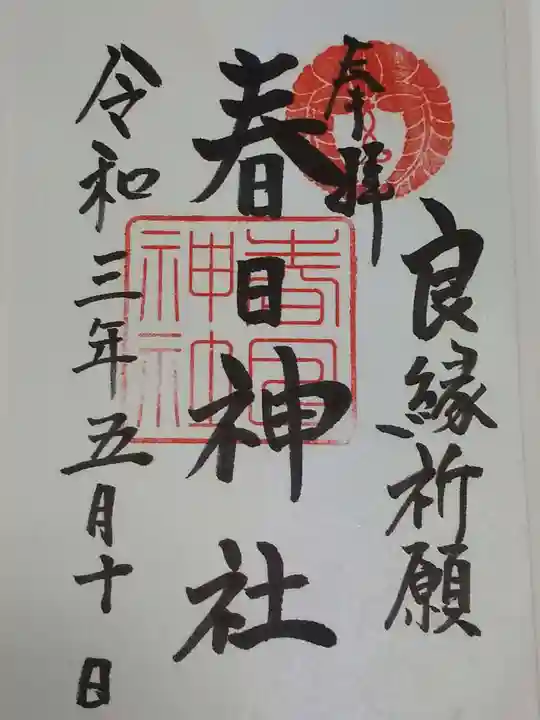 奉拝
良縁祈願
春日神社
春日神社
令和三年五月十日